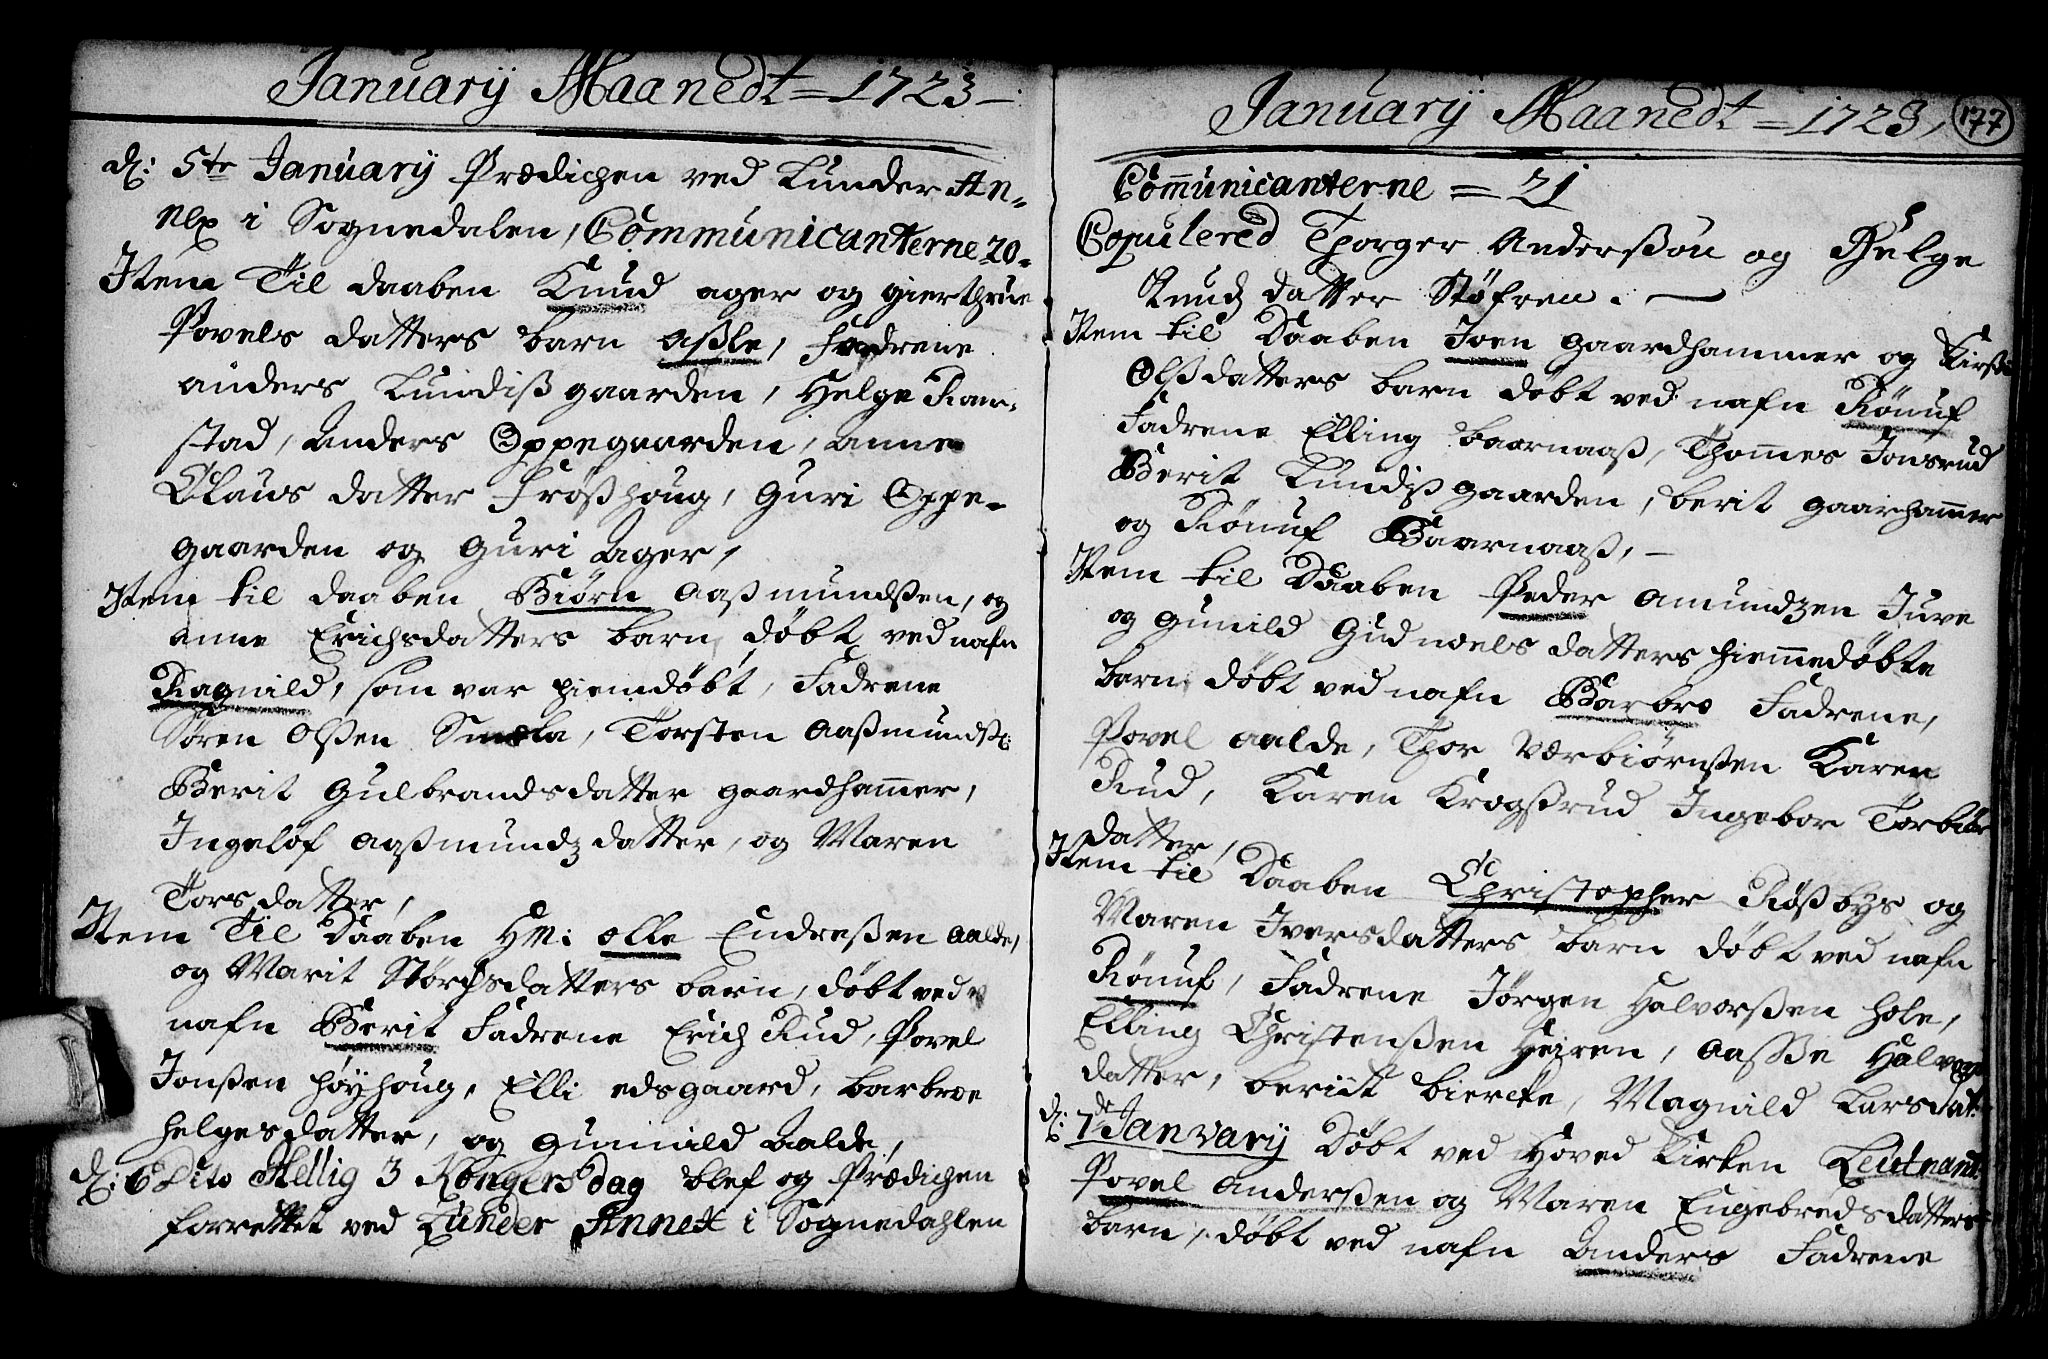 Januarÿ Maanedt = 1723 –
d: 5te Januarÿ Prædichen ved Lunder An-
nex i Sognedalen, Communicanterne 20-
Item Til daaben Knud ager og gierthrue
Povels datters barn aßle, Fadrene
anders Lundißgaarden, Helge Ram-
stad, anders Oppegaarden, anne
Claus datter Frøßhoug, Guri Oppe-
gaarden og Guri Ager,
Item til daaben Biørn Aaßmundßen, og
anne Erichsdatters barn, døbt ved nafn
Ragnild, som var hiemdøbt, Fadrene
Søren Olßen Smæla, Torsten Aaßmundß:
Berit Gulbrandsdatter gaardham̅er,
Ingelof Aaßmundz datter, og Maren
Torsdatter,
Item Til Daaben HM: olle Endreßen aalde,
og Marit Størchsdatters barn, døbt ved
nafn Berit Fadrene Erich Rud, Povel
Jonßen høyhoug, Elli edsgaard, barbroe
helgesdatter, og gunnild Aalde,
d: 6 Dito Hellig 3 Kongers dag blef og Prædichen
forrettet ved Lunder Annex i Sognedahlen
Januarÿ Maanedt = 1723, 177
Com̅unicanterne = 21
Copulered Thorger Anderßøn og Helge
Knudz datter Støfren. —
Item til Daaben Joen gaardhammer og Kirsti
Olßdatters barn døbt ved nafn Rønuf
Fadrene Elling baarnaaß, Thom̅es Jonsrud
Berit Lundißgaarden, berit gaarham̅er
og Rønuf Baarnaaß, —
Item til Daaben Peder Amundzen Jure
og gunild Gudmoels datters hiem̅edøbte
barn døbt ved nafn Barbro Fadrene,
Povel aalde, Thor Værbiørnßen Karen
Rud, Karen Krogßrud Ingebor Torbiør
datter,
Item til Daaben Christopher Røßbys og
Maren Iversdatters barn døbt ved nafn
Rønuf, Fadrene Jørgen Halvorßen hole,
Elling Christenßen Heiren, Aasße Halvor
datter, beriit biercke, Magnild Larsdat:
d: 7de Janvarÿ Døbt ved Hoved Kirken Leutnant
Povel Anderßen og Maren Engebredsdatters
barn, døbt ved nafn Anders Fadrene